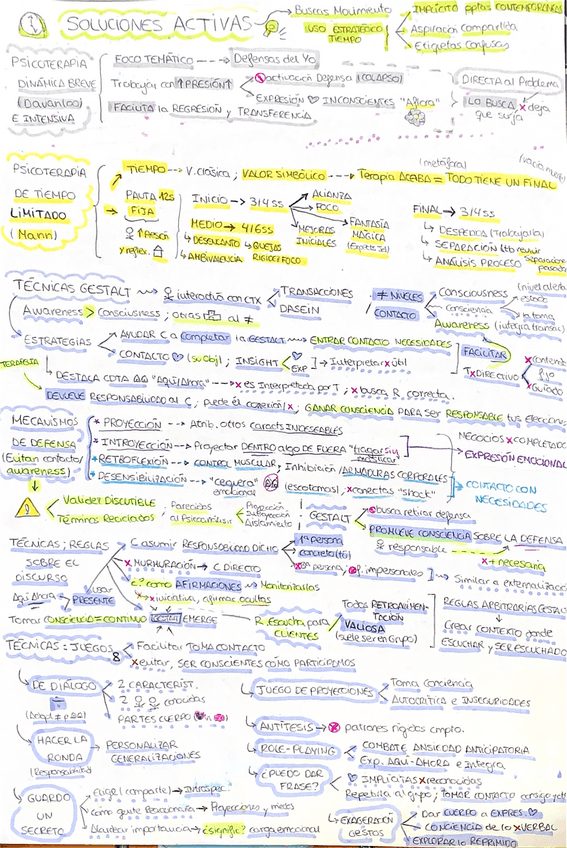 ① SOLUCIONES ACTIVAS
Buscas Movimiento
USO ESTRATÉGICO TIEMPO
IMPLÍCITO pptas CONTEMPORÁNEOS
Aspiración Compartida
Etiquetas confusas
PSICOTERAPIA
DINÁMICA BREVE
(Davanloo)
E INTENSIVA
FOCO TEMÁTICO → Defensas del Yo
Trabaja con ↑PRESIÓN↑
activación Defensa (COLAPSO)
EXPRESIÓN ♡ INCONSCIENTES "Aflora"
FACILITA la REGRESIÓN y TRANSFERENCIA
DIRECTA al Problema
LA BUSCA, x deja
que surja
PSICOTERAPIA
DE TIEMPO
LIMITADO
(Mann)
TIEMPO → V. clásica; VALOR SIMBÓLICO → Terapia ACABA = TODO TIENE UN FINAL
(metáfora)
PAUTA 12S
FIJA
INICIO → 3/4 SS
ALIANZA
FOCO
MEJORAS
INICIALES
FANTASÍA
MÁGICA
MEDIO → 4/6 SS
DESENCANTO → QUEJAS
AMBIVALENCIA RIGIDEZ FOCO
FINAL → 3/4 SS
DESPEDIDA (Trabajarla)
SEPARACIÓN
ANÁLISIS PROCESO
TÉCNICAS GESTALT
interactúa con CTX
TRANSACCIONES
DASEIN
≠ NIVELES
CONTACTO
Consciousness
Consciencia
Awareness
Awareness > Consciousness; otras
ESTRATEGIAS
AYUDAR C a completar la GESTALT → ENTRAR CONTACTO NECESIDADES
CONTACTO ♡ (su Obj; INSIGHT
EXP
] → Interpretar x útil
FACILITAR
T x DIRECTIVO
x contenido
fijo
Guiado
TERAPIA
DESTACA COTA "AQUÍ/Ahora" → x es Interpretada por T; x busca R. correcta.
DEVUELVE RESPONSABILIDAD al C; GANAR CONSCIENCIA PARA SER RESPONSABLE tus Elecciones
MECANISMOS
DE DEFENSA
(Evitan contacto/
awareness)
* PROYECCIÓN → Atrib. otros caracts INDESEABLES
* INTROYECCIÓN → Proyectar DENTRO algo DE FUERA "tragar sin masticar"
* RETROFLEXIÓN → CONTROL MUSCULAR, Inhibición/ARMADURAS CORPORALES
* DESENSIBILIZACIÓN → "ceguera" emocional (escotomas); x conectas "shock"
NEGOCIOS x COMPLETADOS
EXPRESIÓN EMOCIONAL
CONTACTO CON
NECESIDADES
Validez DISCUTIBLE
Términos Reciclados
Parecidos
al Psicoanálisis
Proyección
Introyección
Aislamiento
GESTALT
busca retirar defensa
PROMUEVE CONSCIENCIA SOBRE LA DEFENSA
responsable
x necesaria
TÉCNICAS; REGLAS
SOBRE EL
DISCURSO
C asumir RESPONSABILIDAD DICHO
1ª persona
concreto (tú)
3ª persona; impersonales
x MURMURACIÓN → C DIRECTO
Similar a externalización
c? como AFIRMACIONES → Monitorizarlas
Aquí/Ahora
usar
PRESENTE
Tomar CONSCIENCIA = CONTINUO
GESTALT EMERGE
R. Escucha para
CLIENTES
Todas RETROALIMENTACIÓN
VALIOSA
(suele ser en Grupo)
REGLAS ARBITRARIAS GESTALT
Crear CONTEXTO donde
ESCUCHAR y SER ESCUCHADO
TÉCNICAS: JUEGOS
Facilitar TOMA CONTACTO
x evitar, SER CONSCIENTES CÓMO PARTICIPAMOS
DE DIÁLOGO
2 CARACTERÍST.
2 conocidas
PARTES CUERPO
HACER LA
RONDA
(Responsabilidad)
PERSONALIZAR
GENERALIZACIONES
GUARDO
UN
SECRETO
Elige (comparte) → Introspec.
como gente Reaccionaría → Proyecciones, miedos
Plantear importancia → ¿signific? carga emocional
JUEGO DE PROYECCIONES
Toma Conciencia
AUTOCRÍTICA E INSEGURIDADES
ANTÍTESIS → patrones rígidos cmpto.
ROLE-PLAYING
COMBATE ANSIEDAD ANTICIPATORIA
Exp. AQUÍ-AHORA e Integra
¿PUEDO DAR
FRASE?
IMPLÍCITAS x reconocidas
Repetirla al grupo; TOMAR CONTACTO consigo
EXAGERACIÓN
GESTOS
Dar CUERPO a EXPRES. ♡
CONCIENCIA de lo x VERBAL
EXPLORAR lo REPRIMIDO